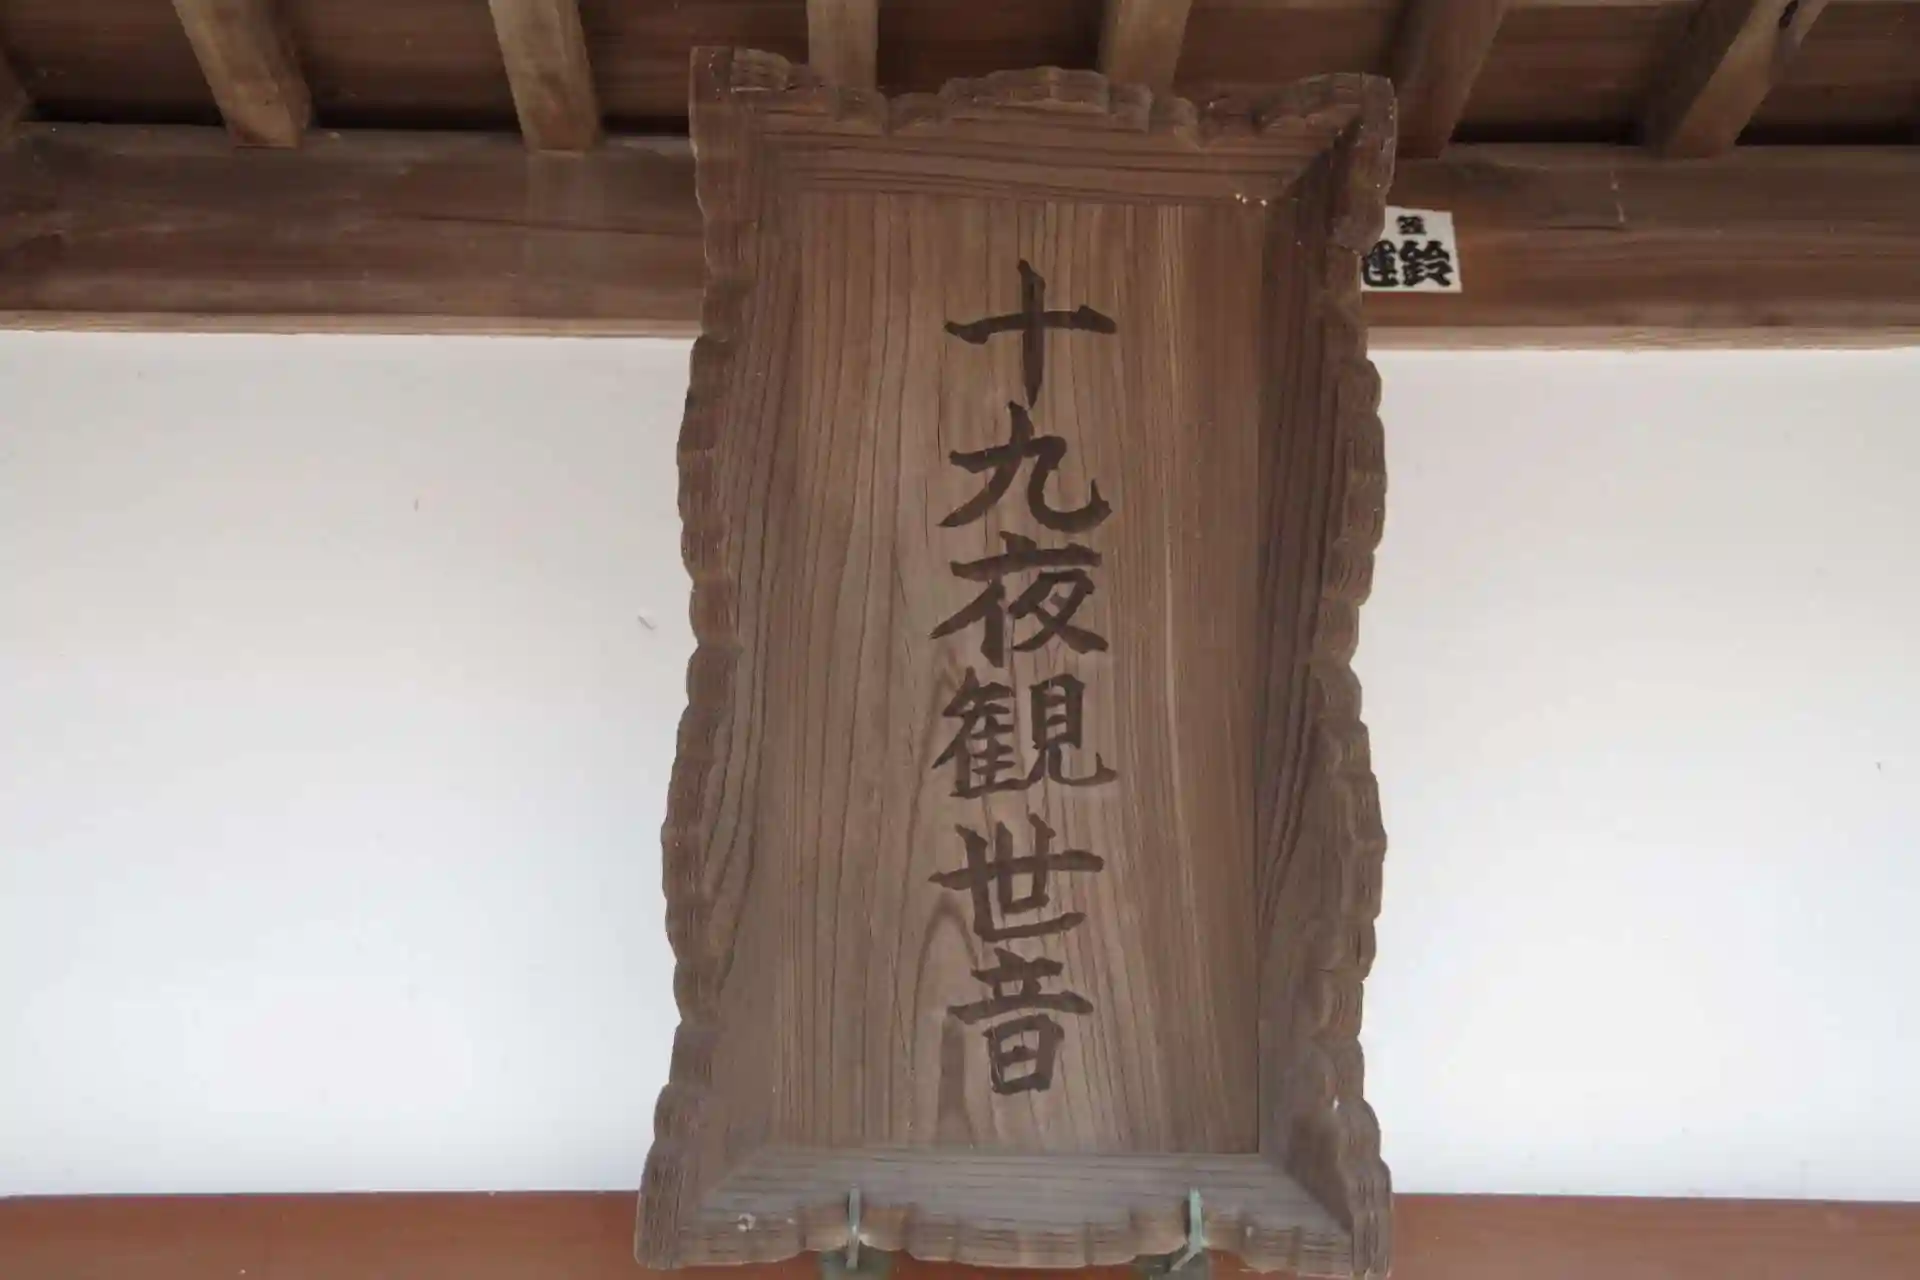 十九夜観世音
鈴